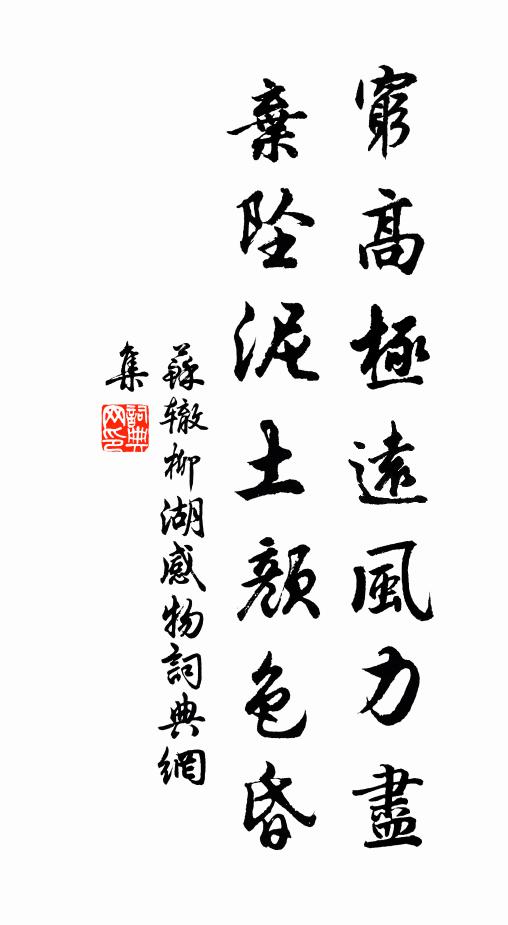 窮高極遠風力盡
棄墜泥土顏色昏
蘇轍柳湖感物詞典網
集
詞典
网印